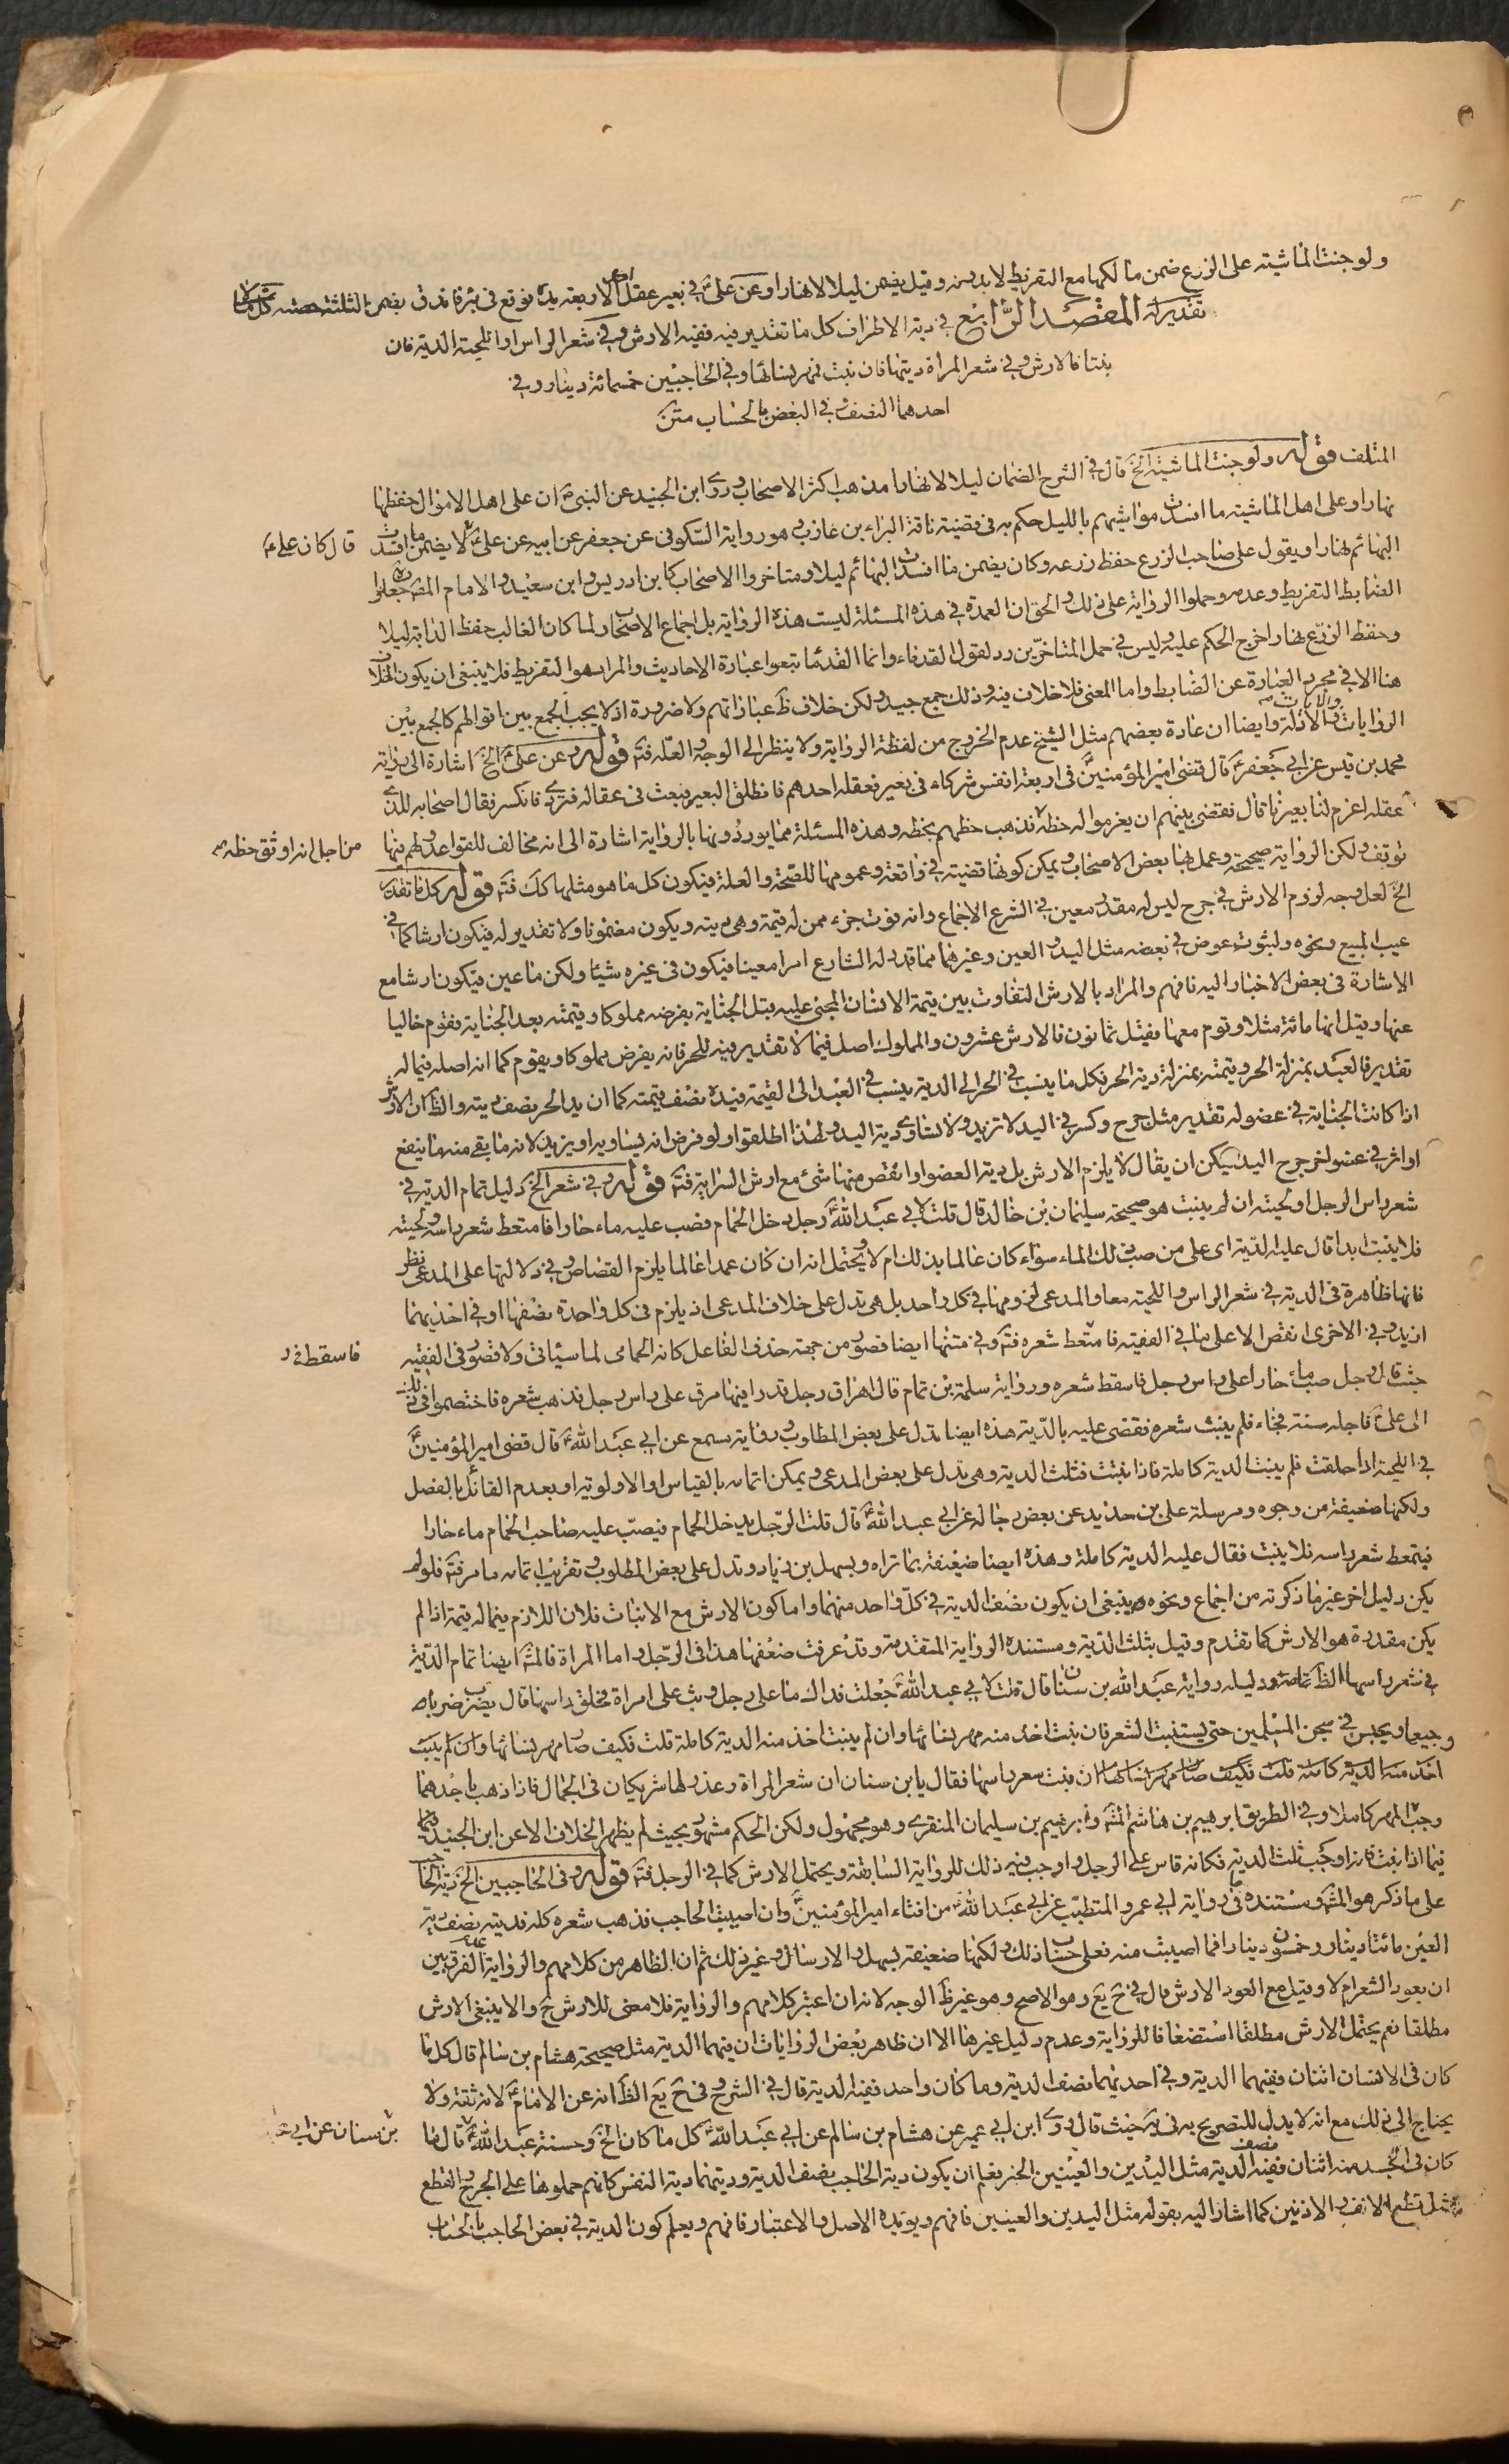 ولو جنت الماشية على الزرع ضمن مالكها مع التفريط لا بدونه وقيل يضمن ليلا لا نهارا وعن علي ع في بعير عقل احد الاربعة يده فوقع في بئر فاندق يضمن الثلثة حصته
المقصد الرابع في دية الاطراف كل ما لا تقدير فيه ففيه الارش وفي شعر الراس او اللحية الدية فان
نبتا فالارش وفي شعر المراة ديتها فان نبت فمهر نسائها وفي الحاجبين خمسمائة دينار وفي
احدهما النصف وفي البعض بالحساب متن
المتلف قوله ولو جنت الماشية الخ قال في الشرح الضمان ليلا لا نهارا مذهب اكثر الاصحاب وروى ابن الجنيد عن النبي ص ان على اهل الاموال حفظها
نهارا وعلى اهل الماشية ما افسدت مواشيهم بالليل حكم به في قضية ناقة البراء بن عازب وهو رواية السكوني عن جعفر عن ابيه عن علي ع لا يضمن ما افسدت
قال كان علي ع
البهائم نهارا ويقول على صاحب الزرع حفظ زرعه وكان يضمن ما افسدت البهائم ليلا ومتاخروا الاصحاب كابن ادريس وابن سعيد والامام المصنف جعلوا
الضابط التفريط وعدمه وحملوا الرواية على ذلك والحق ان العمدة في هذه المسئلة ليست هذه الرواية بل اجماع الاصحاب ولما كان الغالب حفظ الدابة ليلا
وحفظ الزرع نهارا خرج الحكم عليه وليس في حمل المتاخرين رد لقول القدماء وانما القدما تبعوا عبارة الاحاديث والمراد هو التفريط فلا ينبغي ان يكون الخلاف
هنا الا في مجرد العبارة عن الضابط واما المعنى فلا خلاف فيه وذلك جمع جيد ولكن خلاف ظ عباراتهم ولا ضرورة اذ لا يجب الجمع بين اقوالهم كالجمع بين
الروايات والايات والادلة وايضا ان عادة بعضهم مثل الشيخ عدم الخروج من لفظة الرواية ولا ينظر الى الوجه والعلة فت قوله وعن علي ع الخ اشارة الى رواية
محمد بن قيس عن ابي جعفر ع قال قضى امير المؤمنين ع في اربعة انفس شركاء في بعير فعقله احدهم فانطلق البعير فعبث في عقاله فتردى فانكسر فقال اصحابه للذي
عقله اغرم لنا بعيرنا قال فقضى بينهم ان يغرموا له حظه فذهب حظهم بحظه وهذه المسئلة مما يوردونها بالرواية اشارة الى انه مخالف للقواعد ولهم فيها
من اجل انه اوثق حظه
توقف ولكن الرواية صحيحة وعمل بها بعض الاصحاب ويمكن كونها قضية في واقعة وعمومها للصحة والعلة فيكون كل ما هو مثلها كك فت قوله كل ما تقدير
الخ لعل وجه لزوم الارش في جرح ليس له مقدر معين في الشرع الاجماع وانه فوت جزء ممن له قيمة وهي ديته ويكون مضمونا ولا تقدير له فيكون ارشا كما في
عيب المبيع ونحوه ولثبوت عوض في بعضه مثل اليد والعين وغيرهما مما قدر له الشارع امرا معينا فيكون في غيره شيئا ولكن ما عين فيكون ارشا مع
الاشارة في بعض الاخبار اليه فافهم والمراد بالارش التفاوت بين قيمة الانسان المجني عليه قبل الجناية بفرضه مملوكا وقيمته بعد الجناية فيقوم خاليا
عنها وقيل انها مائة مثلا وقوم معها فقيل ثمانون فالارش عشرون والمملوك اصل فيما لا تقدير فيه للحر فانه يفرض مملوكا ويقوم كما انه اصله فيما له
تقدير فالعبد بمنزلة الحر وقيمته بمنزلة دية الحر فكل ما ينسب في الحر الى الدية ينسب في العبد الى القيمة فيده نصف قيمته كما ان يد الحر نصف ديته والظ ان الارش
اذا كانت الجناية في عضو له تقدير مثل جرح وكسر في اليد لا تزيد ولا تساوي دية اليد ولهذا اطلقوا ولو فرض انه يساويه او يزيد لانه ما بقي منها ينفع
او اثر في عضو اخر جرح اليد يمكن ان يقال لا يلزم الارش بل دية العضو او انقص منها شئ مع ارش السراية فت قوله وفي شعر الخ دليل تمام الدية في
شعر راس الرجل او لحيته ان لم ينبت هو صحيحة سليمان بن خالد قال قلت لابي عبد الله ع رجل دخل الحمام فصب عليه ماء حارا فامتعط شعر راسه ولحيته
فلا ينبت ابدا قال عليه الدية اى على من صب ذلك الماء سواء كان عالما بذلك ام لا ويحتمل انه ان كان عمدا عالما يلزم القصاص وفي دلالتها على المدعى نظر
فانها ظاهرة في الدية في شعر الراس واللحية معا والمدعى لزومها في كل واحد بل هي تدل على خلاف المدعى اذ يلزم في كل واحدة نصفها او في احديهما
ازيد وفي الاخرى انقص الا على ما في الفقيه فامتعط شعره فت وفي متنها ايضا قصور من جهة حذف الفاعل كانه الحمامى لما سياتي ولا قصور في الفقيه
فاسقط في ر
حيث قال رجل صب ماء حارا على راس رجل فاسقط شعره ورواية سلمة بن تمام قال اهراق رجل قدرا فيها مرق على راس رجل فذهب شعره فاختصموا في ذلك
الى علي ع فاجله سنة فجاء فلم ينبت شعره فقضى عليه بالدية هذه ايضا تدل على بعض المطلوب ورواية مسمع عن ابي عبد الله ع قال قضى امير المؤمنين ع
في اللحية اذا حلقت فلم ينبت الدية كاملة فاذا نبتت فثلث الدية وهي تدل على بعض المدعى ويمكن اتمامه بالقياس او الاولوية او بعدم القائل بالفصل
ولكنها ضعيفة من وجوه ومرسلة علي بن حديد عن بعض رجاله عن ابي عبد الله ع قال قلت الرجل يدخل الحمام فيصب عليه صاحب الحمام ماء حارا
فيتمعط شعر راسه فلا ينبت فقال عليه الدية كاملة وهذه ايضا ضعيفة بما تراه وبسهل بن زياد وتدل على بعض المطلوب وتقريب اتمامه ما مر فت فلو لم
يكن دليل اخر غير ما ذكرته من اجماع ونحوه ينبغي ان يكون نصف الدية في كل واحد منهما واما كون الارش مع الانبات فلان اللازم فيما له قيمة اذا لم
يكن مقدرة هو الارش كما تقدم وقيل بثلث الدية ومستنده الرواية المتقدمة وقد عرفت ضعفها هذا في الرجل واما المراة فالمش ايضا تمام الدية
في شعر راسها ودليله رواية عبد الله بن سنان قال قلت لابي عبد الله ع جعلت فداك ما على رجل وثب على امراة فحلق راسها قال يضرب ضربا
وجيعا ويحبس في سجن المسلمين حتى يستنبت الشعر فان نبت اخذ منه مهر نسائها وان لم ينبت اخذ منه الدية كاملة قلت فكيف صار مهر نسائها وان لم ينبت
اخذ منه الدية كاملة قلت فكيف صار مهر نسائها ان نبت شعر راسها فقال يابن سنان ان شعر المراة وعذرتها شريكان في الجمال فاذا ذهب باحدهما
وجب المهر كاملا وفي الطريق ابرهيم بن هاشم وابرهيم بن سليمان المنقري وهو مجهول ولكن الحكم مشهور بحيث لم يظهر الخلاف الا عن ابن الجنيد
فيما اذا نبت فانه اوجب ثلث الدية فكانه قاس على الرجل واوجب فيه ذلك للرواية السابقة ويحتمل الارش كما في الرجل فت قوله وفي الحاجبين الخ دية الحاجب
على ما ذكر هو المش ومستنده ما في رواية ابي عمرو المتطبب عن ابي عبد الله ع من افتاء امير المؤمنين ع وان اصيب الحاجب فذهب شعره كله فديته نصف دية
العين مائتا دينار وخمسون دينارا فما اصيب منه فعلى حساب ذلك ولكنها ضعيفة بسهل والارسال وغير ذلك ثم ان الظاهر من كلامهم والرواية عدم الفرق بين
ان يعود الشعر ام لا وقيل مع العود الارش قال في ح يع وهو الاصح وهو غير ظ الوجه لانه ان اعتبر كلامهم والرواية فلا معنى للارش ح والا ينبغي الارش
مطلقا نعم يحتمل الارش مطلقا استضعافا للرواية وعدم دليل غيرها الا ان ظاهر بعض الروايات ان فيهما الدية مثل صحيحة هشام بن سالم قال كل ما
كان في الانسان اثنان ففيهما الدية وفي احديهما نصف الدية وما كان واحد ففيه الدية قال في الشرح وفي ح يع الظ انه عن الامام ع لانه ثقة ولا
يحتاج الى ذلك مع انه لا يدل للتصريح به في يه حيث قال روى ابن ابي عمير عن هشام بن سالم عن ابي عبد الله ع كل ما كان الخ وحسنة عبد الله قال ما
بن سنان عن ابي
كان في الجسد منه اثنان ففيه نصف الدية مثل اليدين والعينين الخبر فعلم ان يكون دية الحاجب نصف الدية وديتهما دية النفس كانهم حملوها على الجرح والقطع
مثل قطع الانف والاذنين كما اشار اليه بقوله مثل اليدين والعينين فافهم ويؤيده الاصل والاعتبار فافهم ويعلم كون الدية في بعض الحاجب بالحساب